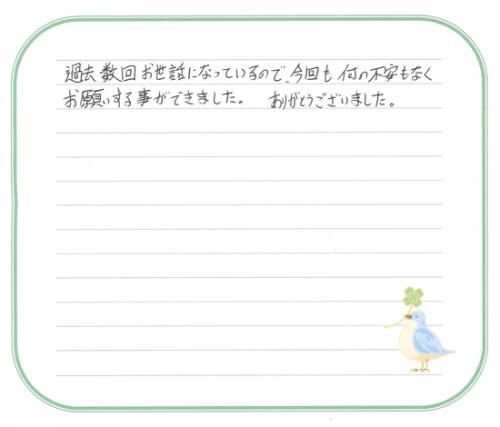 過去数回お世話になっているので、今回も何の不安もなく
お願いする事ができました。 ありがとうございました。